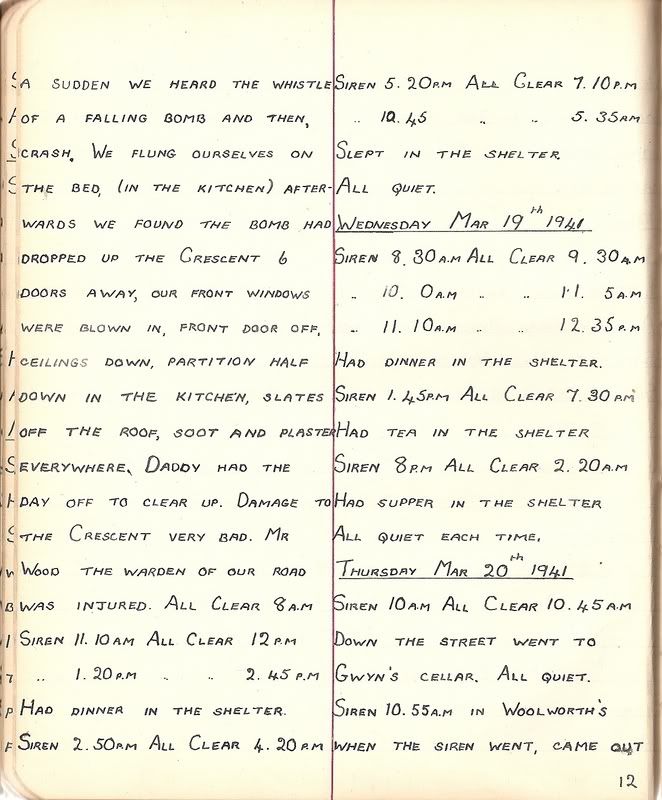 A SUDDEN WE HEARD THE WHISTLE
OF A FALLING BOMB AND THEN,
CRASH. WE FLUNG OURSELVES ON
THE BED, (IN THE KITCHEN) AFTER-
WARDS WE FOUND THE BOMB HAD
DROPPED UP THE CRESCENT 6
DOORS AWAY, OUR FRONT WINDOWS
WERE BLOWN IN, FRONT DOOR OFF,
CEILINGS DOWN, PARTITION HALF
DOWN IN THE KITCHEN, SLATES
OFF THE ROOF, SOOT AND PLASTER
EVERYWHERE, DADDY HAD THE
DAY OFF TO CLEAR UP. DAMAGE TO
THE CRESCENT VERY BAD. MR
WOOD THE WARDEN OF OUR ROAD
WAS INJURED. ALL CLEAR 8AM
SIREN 11.10AM ALL CLEAR 12P.M
.. 1.20P.M .. .. 2.45P.M
HAD DINNER IN THE SHELTER.
SIREN 2.50PM ALL CLEAR 4.20PM
SIREN 5.20PM ALL CLEAR 7.10P.M
.. 10.45 .. .. 5.35AM
SLEPT IN THE SHELTER.
ALL QUIET.
WEDNESDAY MAR 19th 1941
SIREN 8.30A.M ALL CLEAR 9.30A.M
.. 10.0A.M .. .. 11.5A.M
.. 11.10A.M .. .. 12.35P.M
HAD DINNER IN THE SHELTER.
SIREN 1.45PM ALL CLEAR 7.30PM
HAD TEA IN THE SHELTER
SIREN 8P.M ALL CLEAR 2.20A.M
HAD SUPPER IN THE SHELTER
ALL QUIET EACH TIME.
THURSDAY MAR 20th 1941
SIREN 10A.M ALL CLEAR 10.45A.M
DOWN THE STREET WENT TO
GWYN'S CELLAR. ALL QUIET.
SIREN 10.55A.M IN WOOLWORTH'S
WHEN THE SIREN WENT, CAME OUT
12